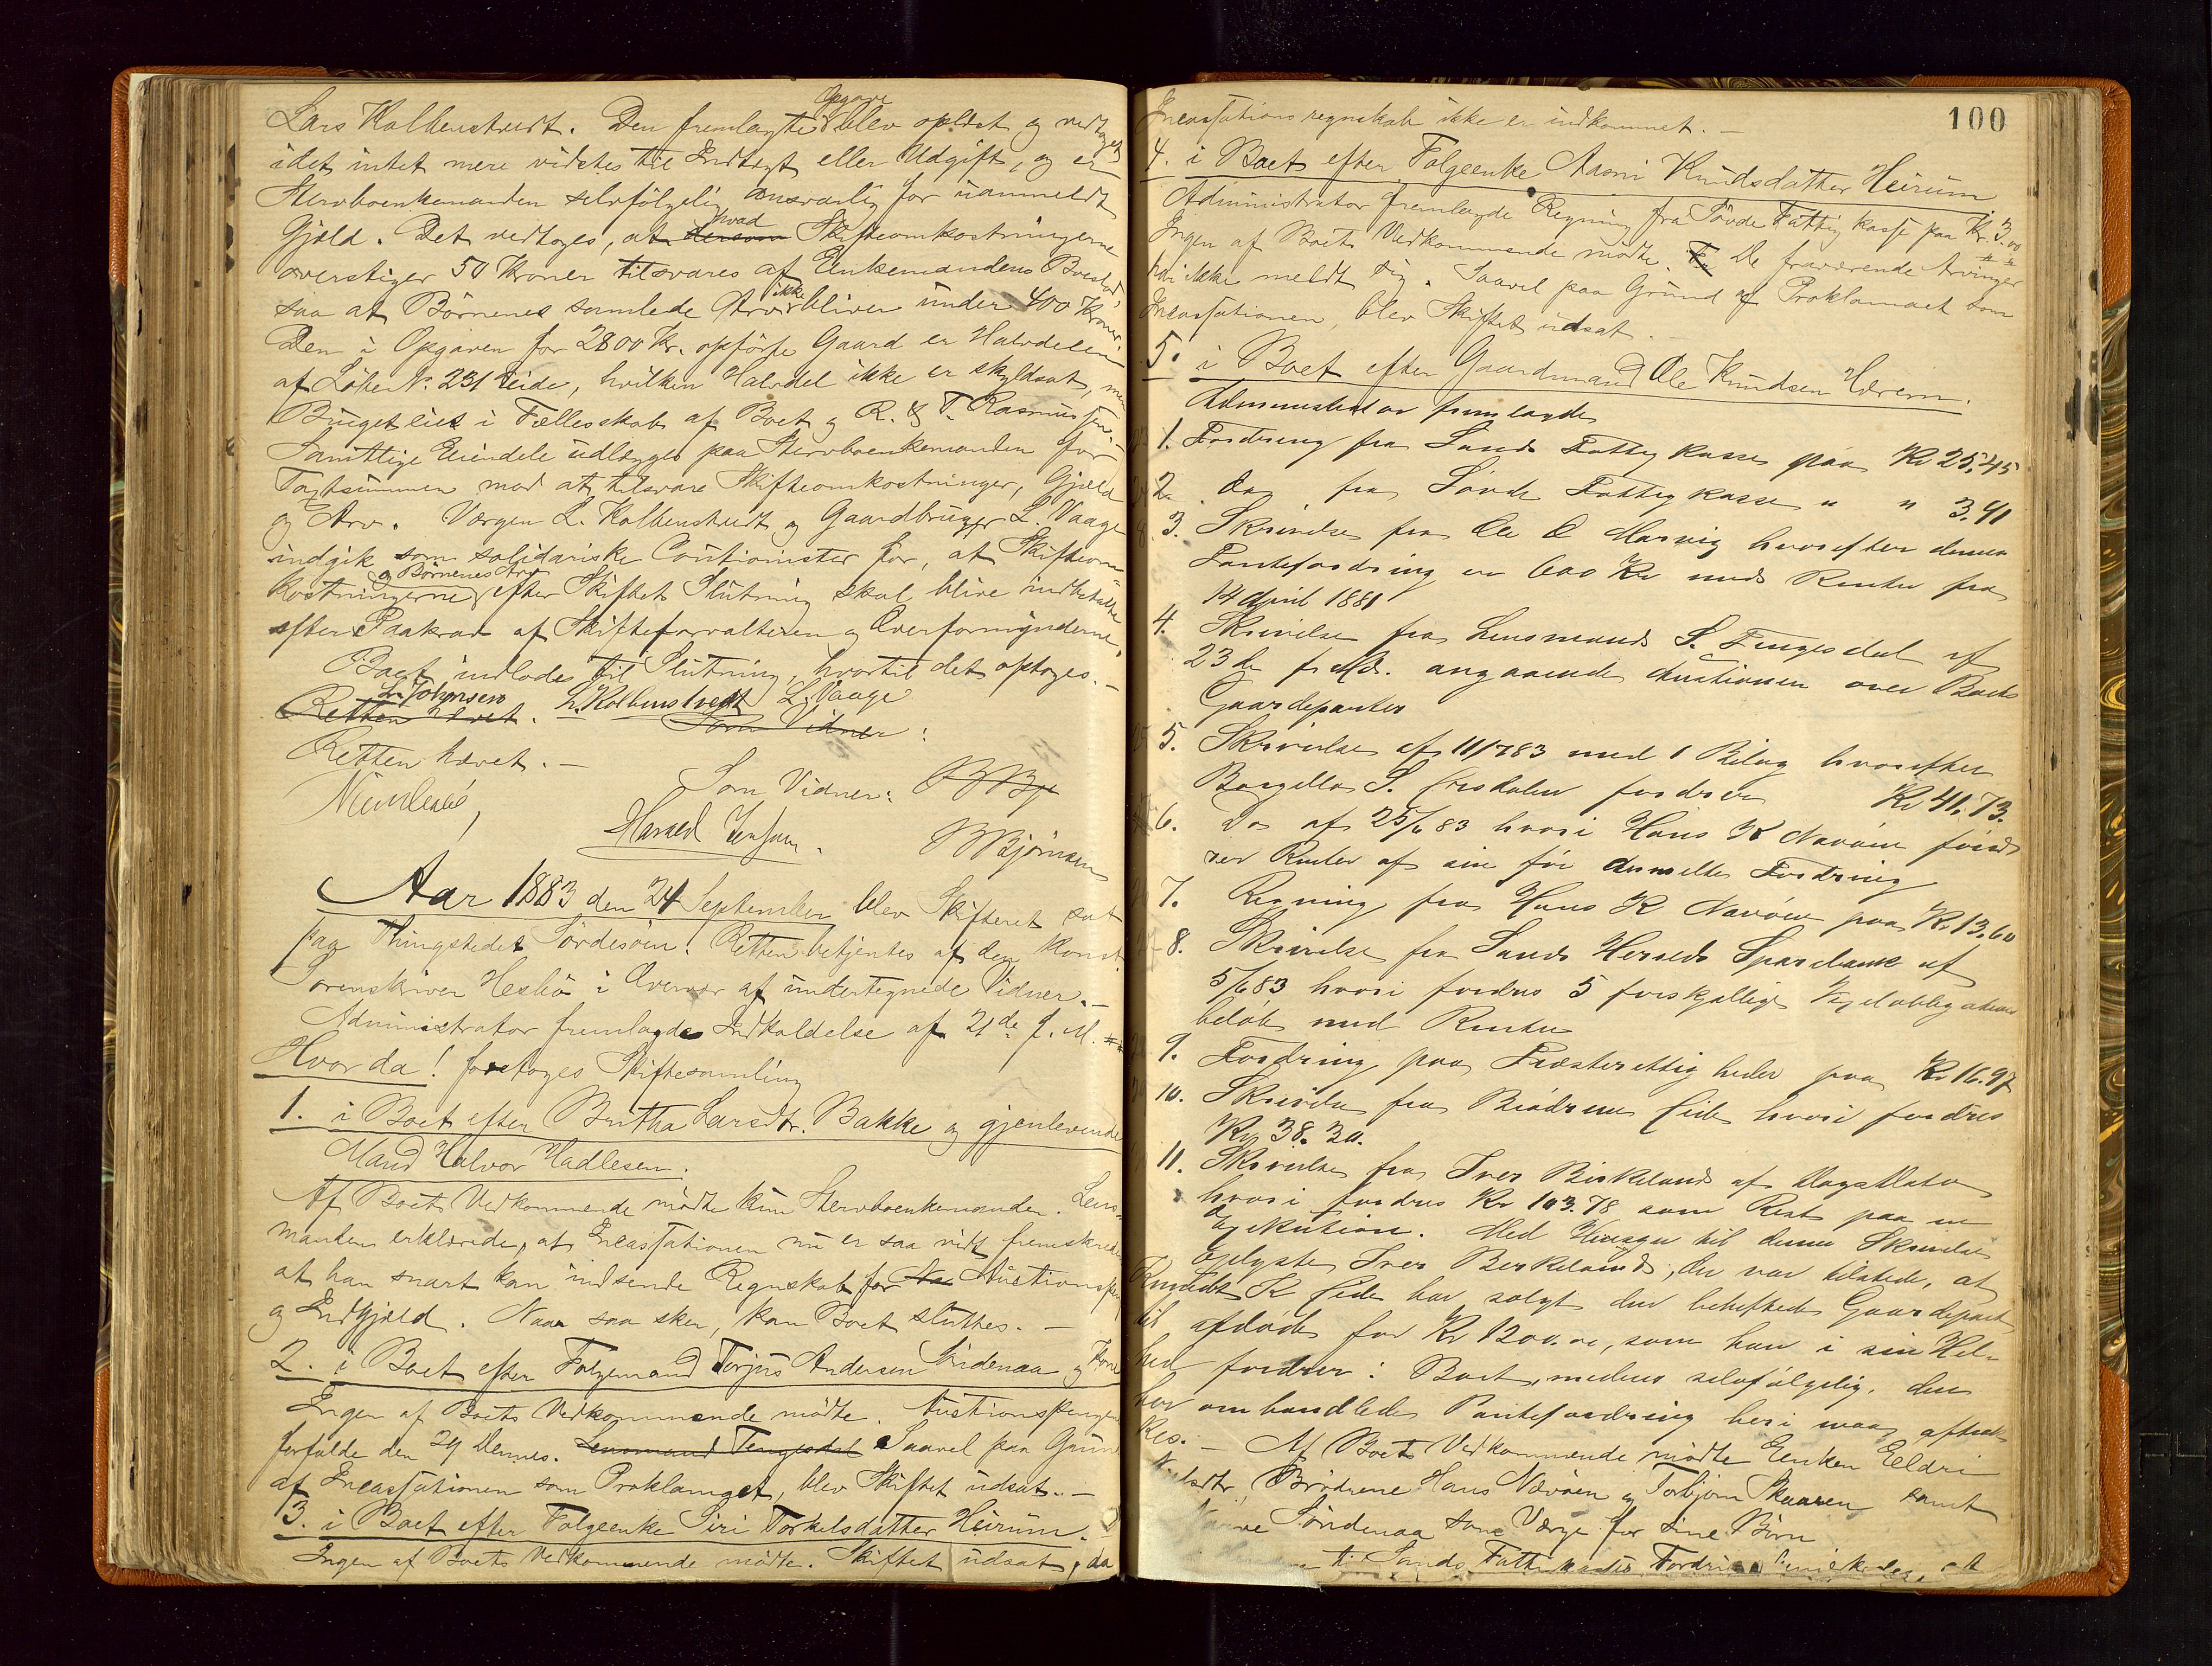 Lars Kolbenstvedt. Den fremlagte Opgave blev oplæst og vedtaget
idet intet mere vidstes til Indtægt eller Udgift, og er
Stervboenkemanden selvfölgelig ansvarlig for uanmeldt
Gjæld. Det vedtoges, at dersom hvad Skifteomkostningerne
overstiger 50 Kroner tilsvares af Enkemandens Boeslod,
saa at Börnenes samlede Arv ikke bliver under 400 Kroner.
Den i Opgaven for 2800 Kr. opförte Gaard er Halvdelen
af Löbe N. 231 Eide, hvilken Halvdel ikke er skyldsat, men
Bruget eies i Fællesskab af Boet og R. & T. Rasmussen.
Samtlige Eiendele udlægges paa Stervboenkemanden for
Taxtsummen mod at tilsvare Skifteomkostninger, Gjæld
og Arv. Værgen L. Kolbenstvedt og Gaardbruger L. Vaage
indgik som solidariske Cautionister for, at Skifteom
kostningerne og Börnenes Arv efter Skiftets Slutning skal blive indbetalte
efter Paakrav af Skifteforvalteren og Overformynderne.
Boet indlodes til Slutning, hvortil det optoges. –
L. Johnsen L. Kolbenstvedt L. Vaage
Retten hævet. Som Vidner:
Retten hævet. –
Som Vidner: B Bj
Harald Jensen. B Björnsen
Aar 1883 den 24 September blev Skifteret sat
paa Thingstedet Sövdesöen. Retten betjentes af den Konst.
Sorenskriver Hesbö i Overvær af undertegnede Vidner. –
Administrator fremlagde Indkaldelse af 21de f. M.
Hvor da! foretoges Skiftesamling
1. i Boet efter Britha Larsdtr. Bakke og gjenlevende
Mand Halvor Hadlesen.
Af Boets Vedkommende mödte kun Stervboenkemanden. Lens-
manden erklærede, at Incassationen nu er saa vidt fremskreden
at han snart kan indsende Regnskab for Na Auctionspenge
og Indgjæld. Naar saa sker, kan Boet sluttes. –
2. i Boet efter Folgemand Torjus Andersen Söndenaa og Kone
Ingen af Boets Vedkommende mödte. Auctionspengene
forfaldt den 29 Dennes. Lensmand Tengesdal Saavel paa Grund
af Incassationen som Proklamaet, blev Skiftet udsat. –
3. i Boet efter Folgeenke Siri Torkelsdatter Heirum.
Ingen af Boets Vedkommende mödte. Skiftet udsat, da
100
Incassationsregnskab ikke er indkommet. –
4. i Boet efter Folgeenke Aasni Knudsdatter Heirum
Administrator fremlagde Regning fra Sövde Fattigkasse paa Kr. 3.00
Ingen af Boets Vedkommende mödte. De fraværende Arvinger
har ikke meldt sig. Saavel paa Grund af Proklamaet som
Incassationen, blev Skiftet udsat. –
5. i Boet efter Gaardmand Ole Knudsen Hærem.
Administrator fremlagde
1. Fordring fra Sands Fattigkasse paa Kr 25,45
2. do fra Sövde Fattigkasse " " 3.91
3. Skrivelse fra Ole O Marvig hvorefter dennes
Pantefordring er 600 Kr med Renter fra
14 April 1881
4. Skrivelse fra Lensmand S. Tengesdal af
23de f. Md. angaaende Auctionen over Boets
Gaardeparter
5. Skrivelse af 11/7 83 med 1 Bilag hvorefter
S. fordrer Kr 41.73.
6. Do af 25/6 83 hvori Hans K Naröen fordrer
Renter af sin för anmeldte Fordring
7. Regning fra Hans K Naröen paa Kr 13.60
8. Skrivelse fra Sands Herreds Sparebank af
5/6 83 hvori fordres 5 forskjellige Vexelobligations
beløb med Renter
9. Fordring paa Præsterettigheder paa Kr 16.97
10. Skrivelse fra Brödrene Eide hvori fordres
Kr 38.30.
11. Skrivelse fra Iver Birkeland af Dags Dato
hvori fordres Kr 103.78 som Rest paa en
Exekution. Med Hensyn til denne Skrivelse
oplyste Iver Birkeland, der var tilstede, at
Knudt K Eide har solgt den beheftede Gaardepart
til afdöde for Kr 1200.00, som han i sin Hel-
hed fordrer i Boet, medens selvfölgelig den
her omhandlede Pantefordring heri maa aftræk
kes. – Af Boets Vedkommende mödte Enken Eeldri
Brödrene Hans Narøen og Torbjörn Skaaren samt
Söndenaa som Værge for sine Börn
Sands Fattigkasses Fordring